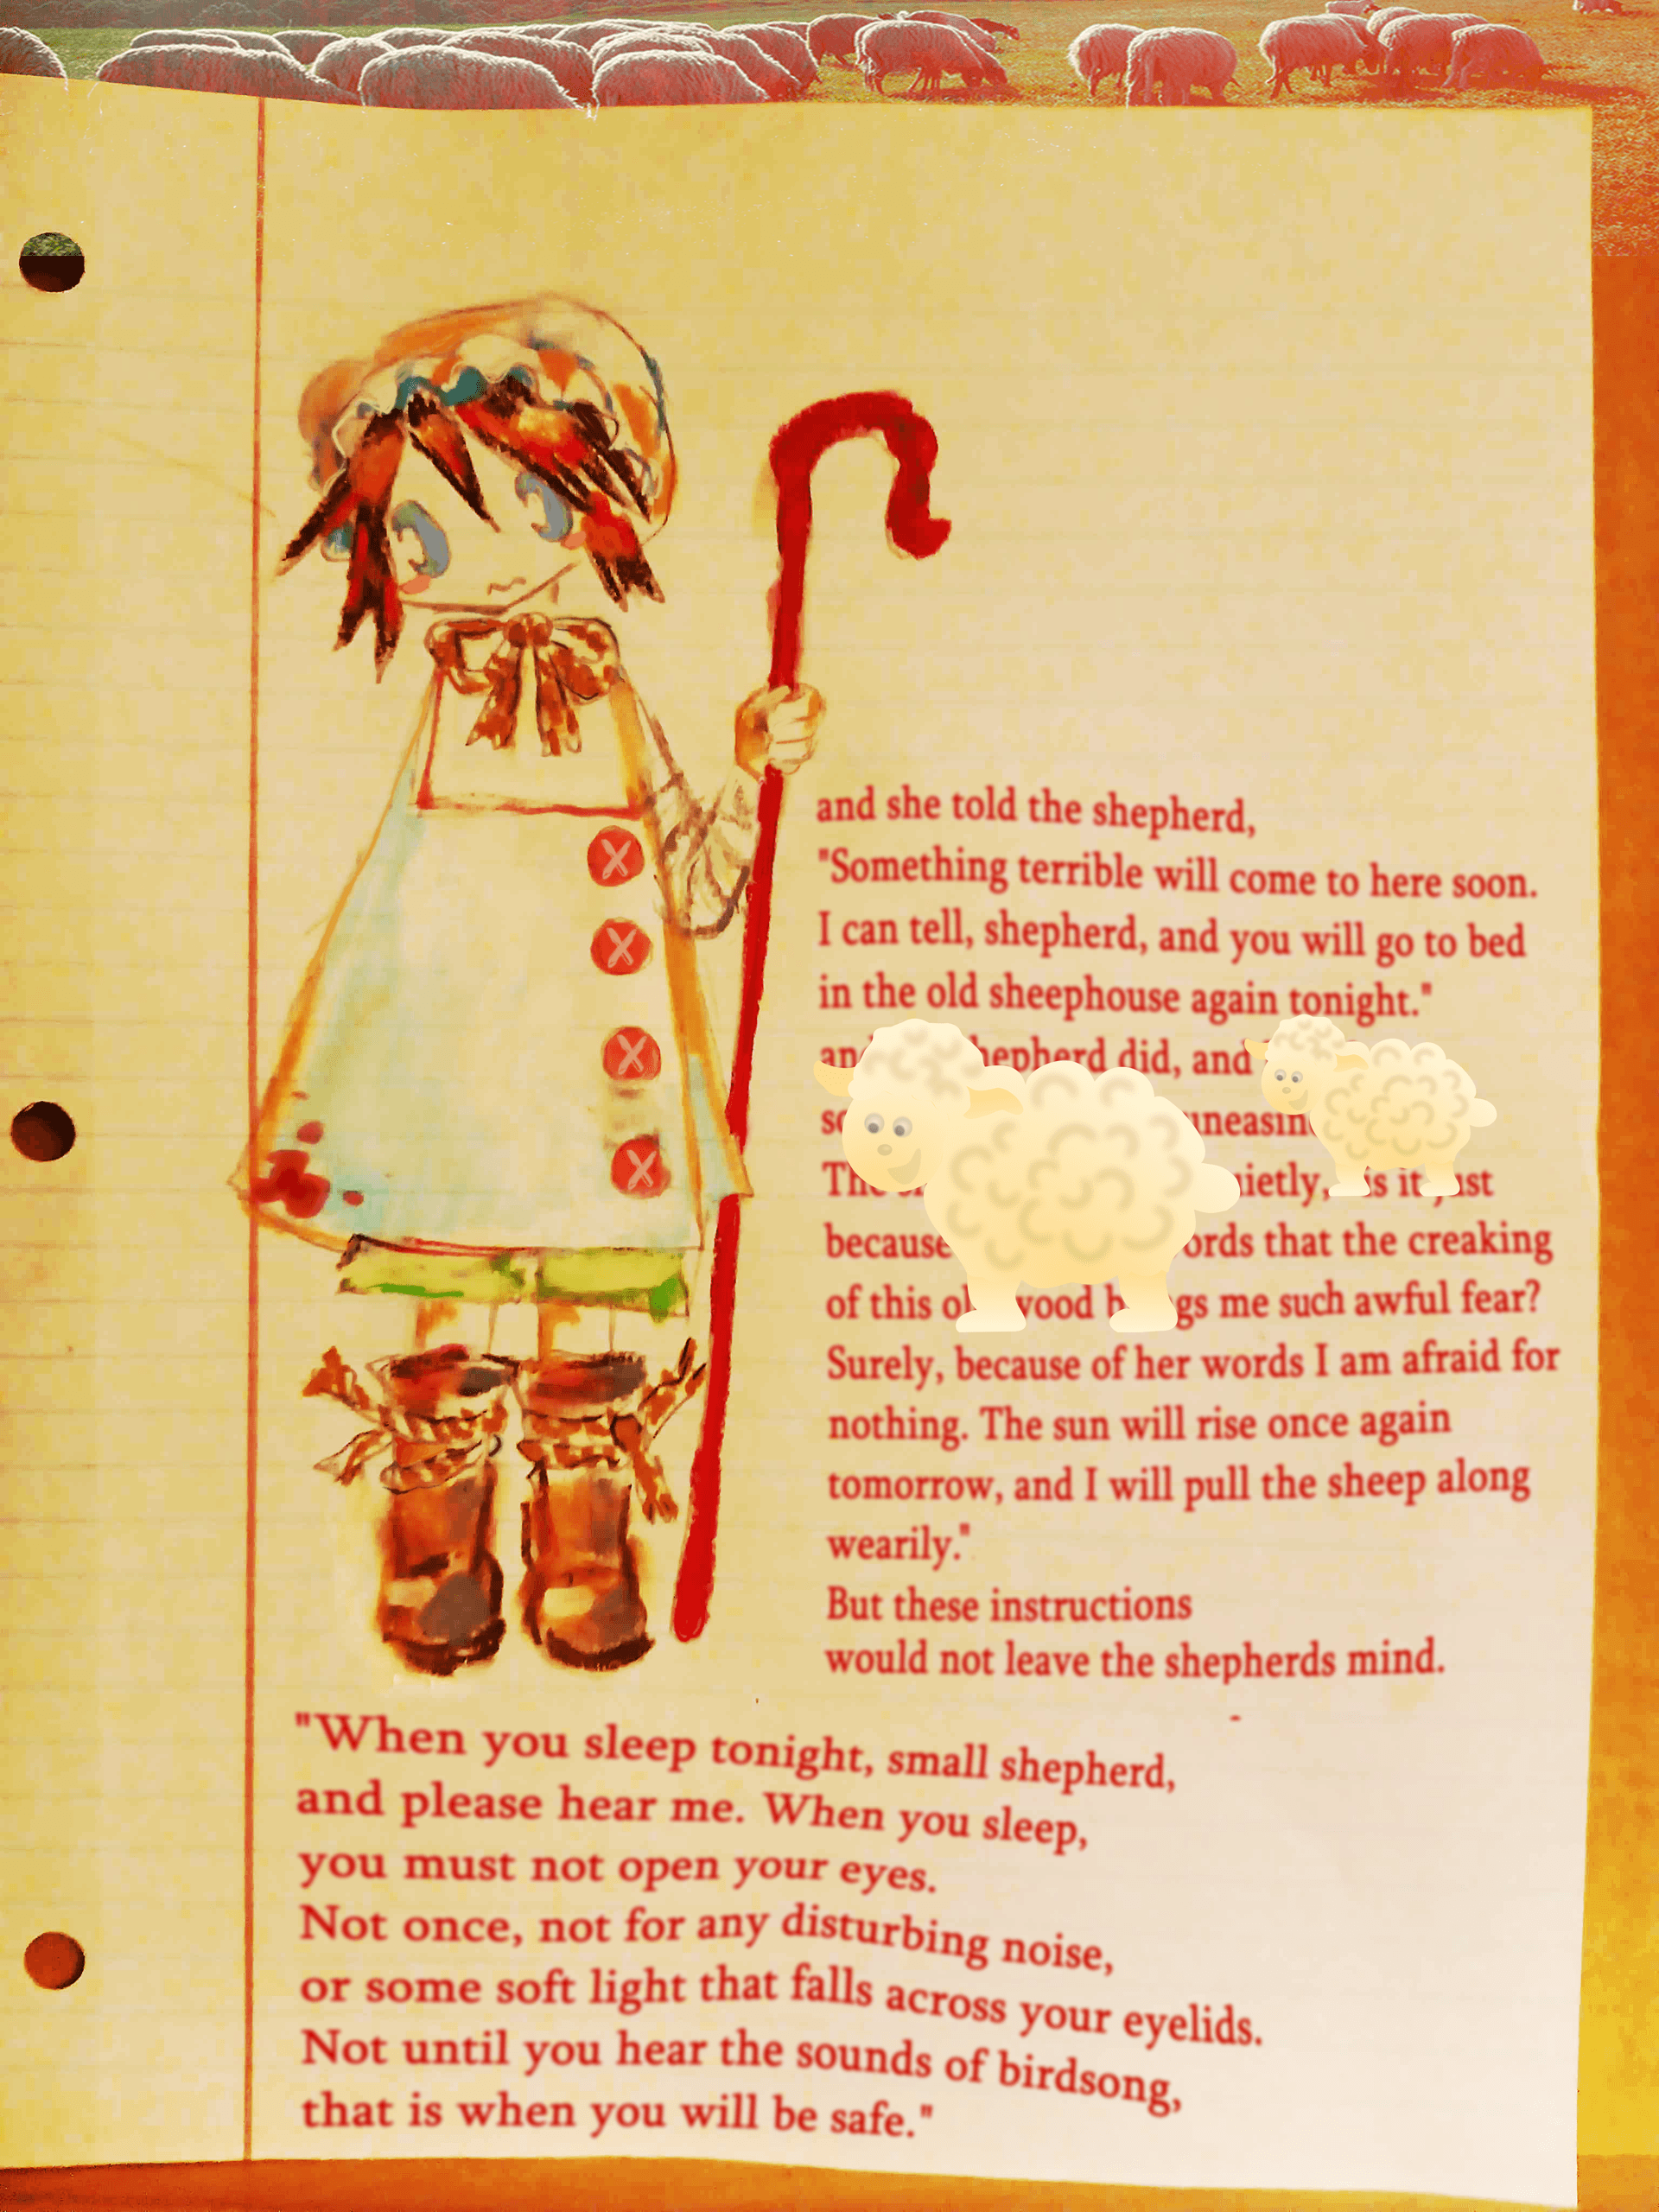 and she told the shepherd,
"Something terrible will come to here soon.
I can tell, shepherd, and you will go to bed
in the old sheephouse again tonight."
shepherd did, and
uneasin
quietly, is it just
because words that the creaking
of this old wood brings me such awful fear?
Surely, because of her words I am afraid for
nothing. The sun will rise once again
tomorrow, and I will pull the sheep along
wearily."
But these instructions
would not leave the shepherds mind.
-
"When you sleep tonight, small shepherd,
and please hear me. When you sleep,
you must not open your eyes.
Not once, not for any disturbing noise,
or some soft light that falls across your eyelids.
Not until you hear the sounds of birdsong,
that is when you will be safe."